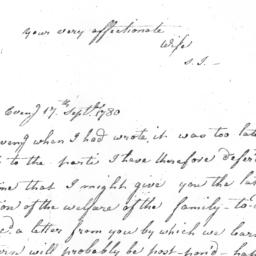 your very affectionate
Wife
S. J. —
Eveng 17th Septr. 1780
eveng when I had wrote it was too lat
to the
I have therefore defer
me that I might give you the la
ion of the welfare of the family - to
ed a letter from you by which we lear
urn will probably be post-pon'd - ha